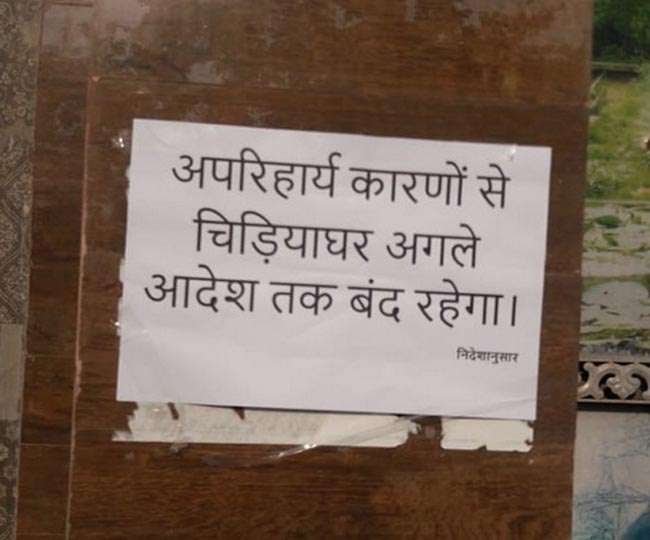 अपरिहार्य कारणों से
चिड़ियाघर अगले
आदेश तक बंद रहेगा।
निदेशानुसार